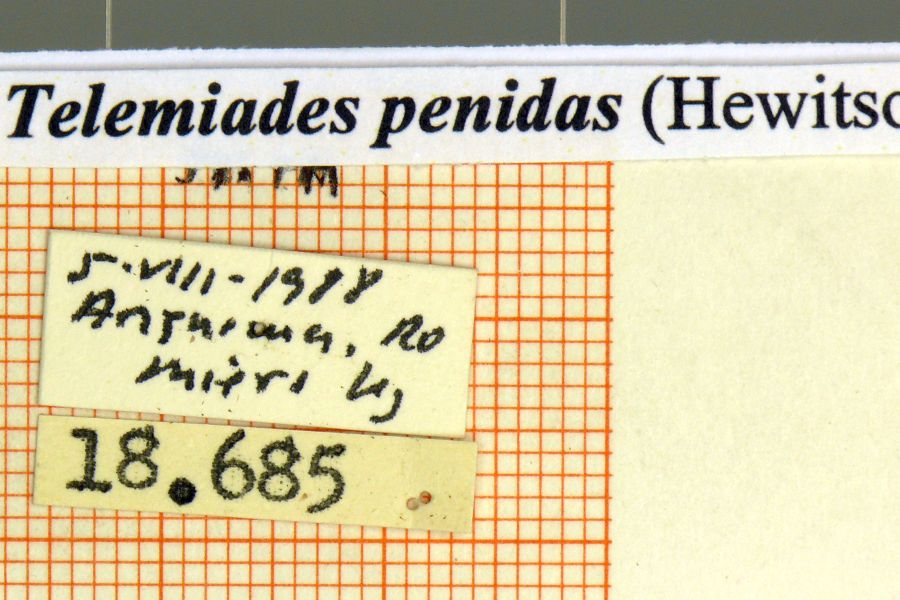 Telemiades penidas (Hewitso
5-VIII-1988
Ro
Mieri
18.685